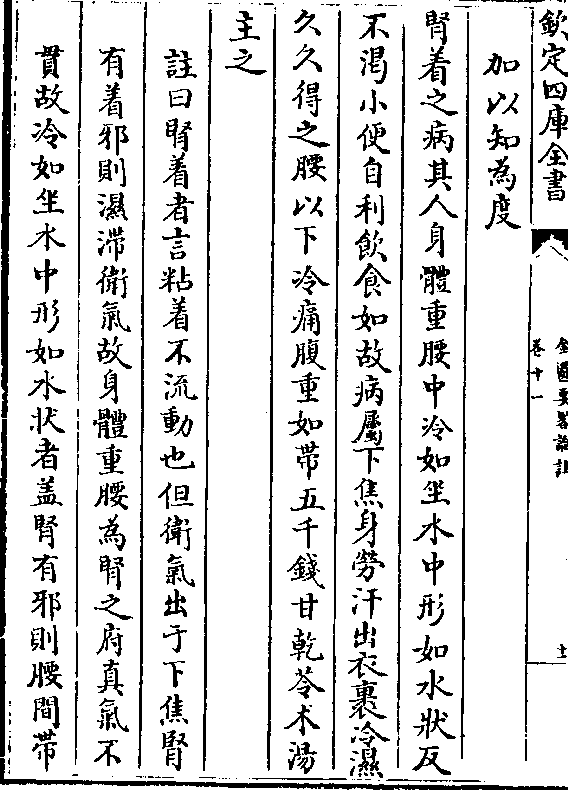 欽定四庫全書
金匱要畧論註
卷十一
加以知為度
腎着之病其人身體重腰中冷如坐水中形如水狀反
不渴小便自利飲食如故病屬下焦身勞汗出衣裹冷濕
久久得之腰以下冷痛腹重如帶五千錢甘乾苓术湯
主之
註曰腎着者言粘着不流動也但衛氣出于下焦腎
有着邪則濕滯衛氣故身體重腰為腎之府真氣不
貫故冷如坐水中形如水狀者盖腎有邪則腰間帶